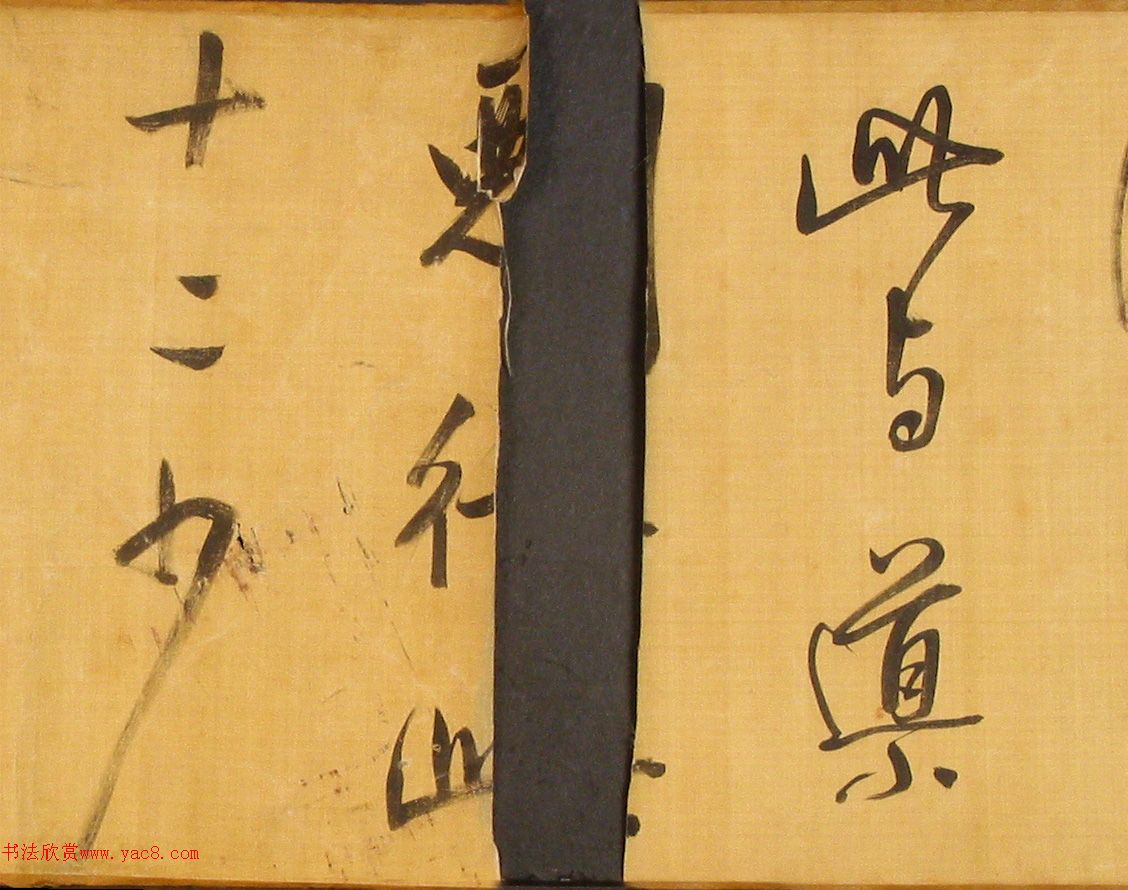 此与導
更行
十二少
书法欣赏www.yac8.com